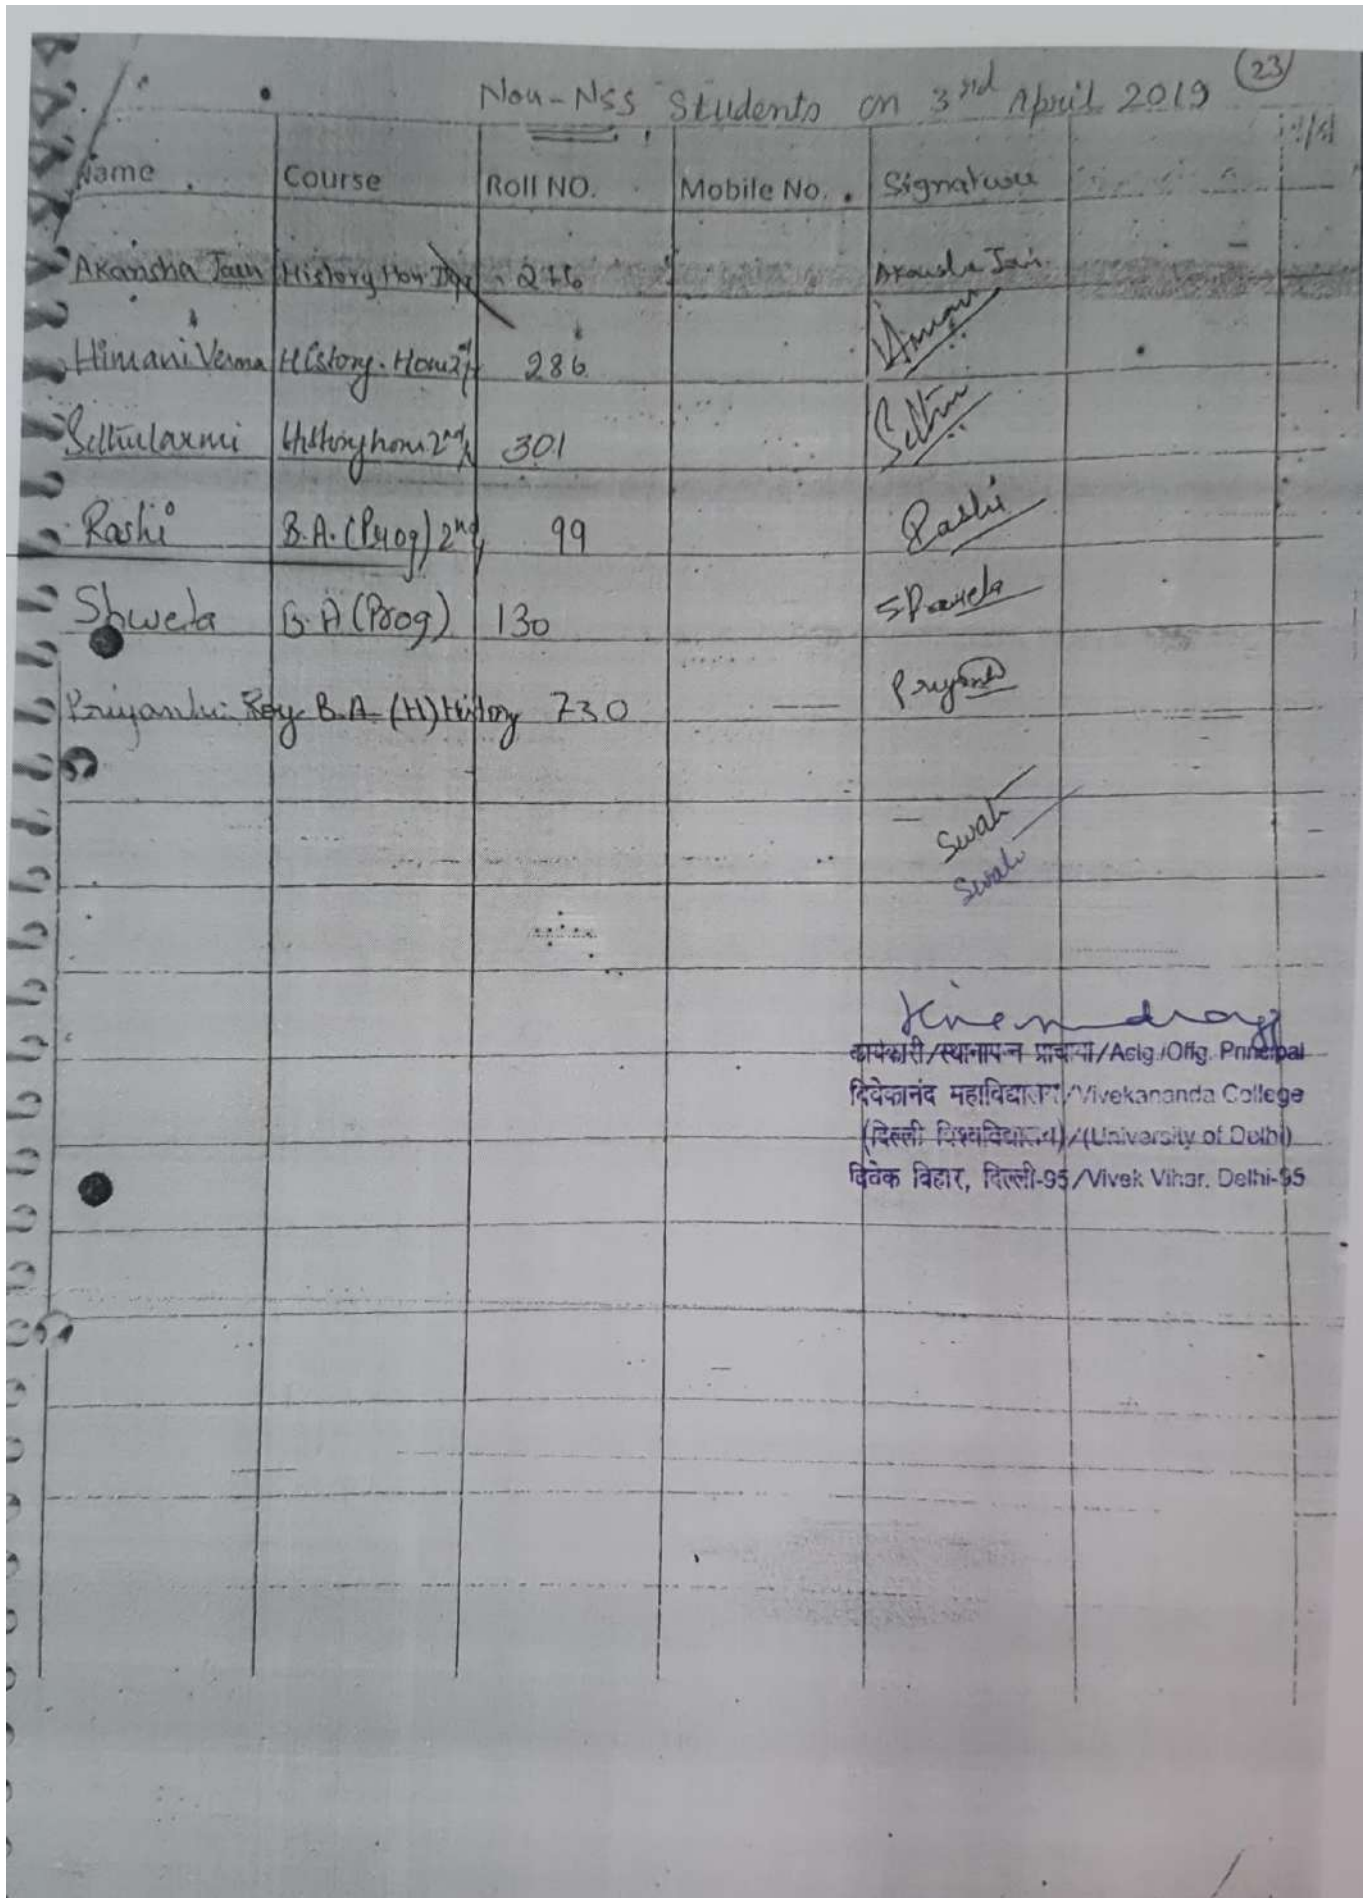 23
Non-NSS Students on 3rd April 2019
Name Course Roll NO. Mobile No. Signature
Akansha Jain History Hon Akansha Jain
Himani Verma History. Hon 2 286 Himani
Sethulaxmi History hons 2nd 301 Sethu
Rashi B.A. (Prog) 2nd 99 Rashi
Shweta B.A (Prog) 130 Shweta
Priyanka Roy B.A. (H) History 730
Swati
Swati
कार्यकारी/स्थानापन्न प्राचार्या/Actg./Offg. Principal
विवेकानंद महाविद्यालय/Vivekananda College
(दिल्ली विश्वविद्यालय)/(University of Delhi)
विवेक विहार, दिल्ली-95/Vivek Vihar, Delhi-95